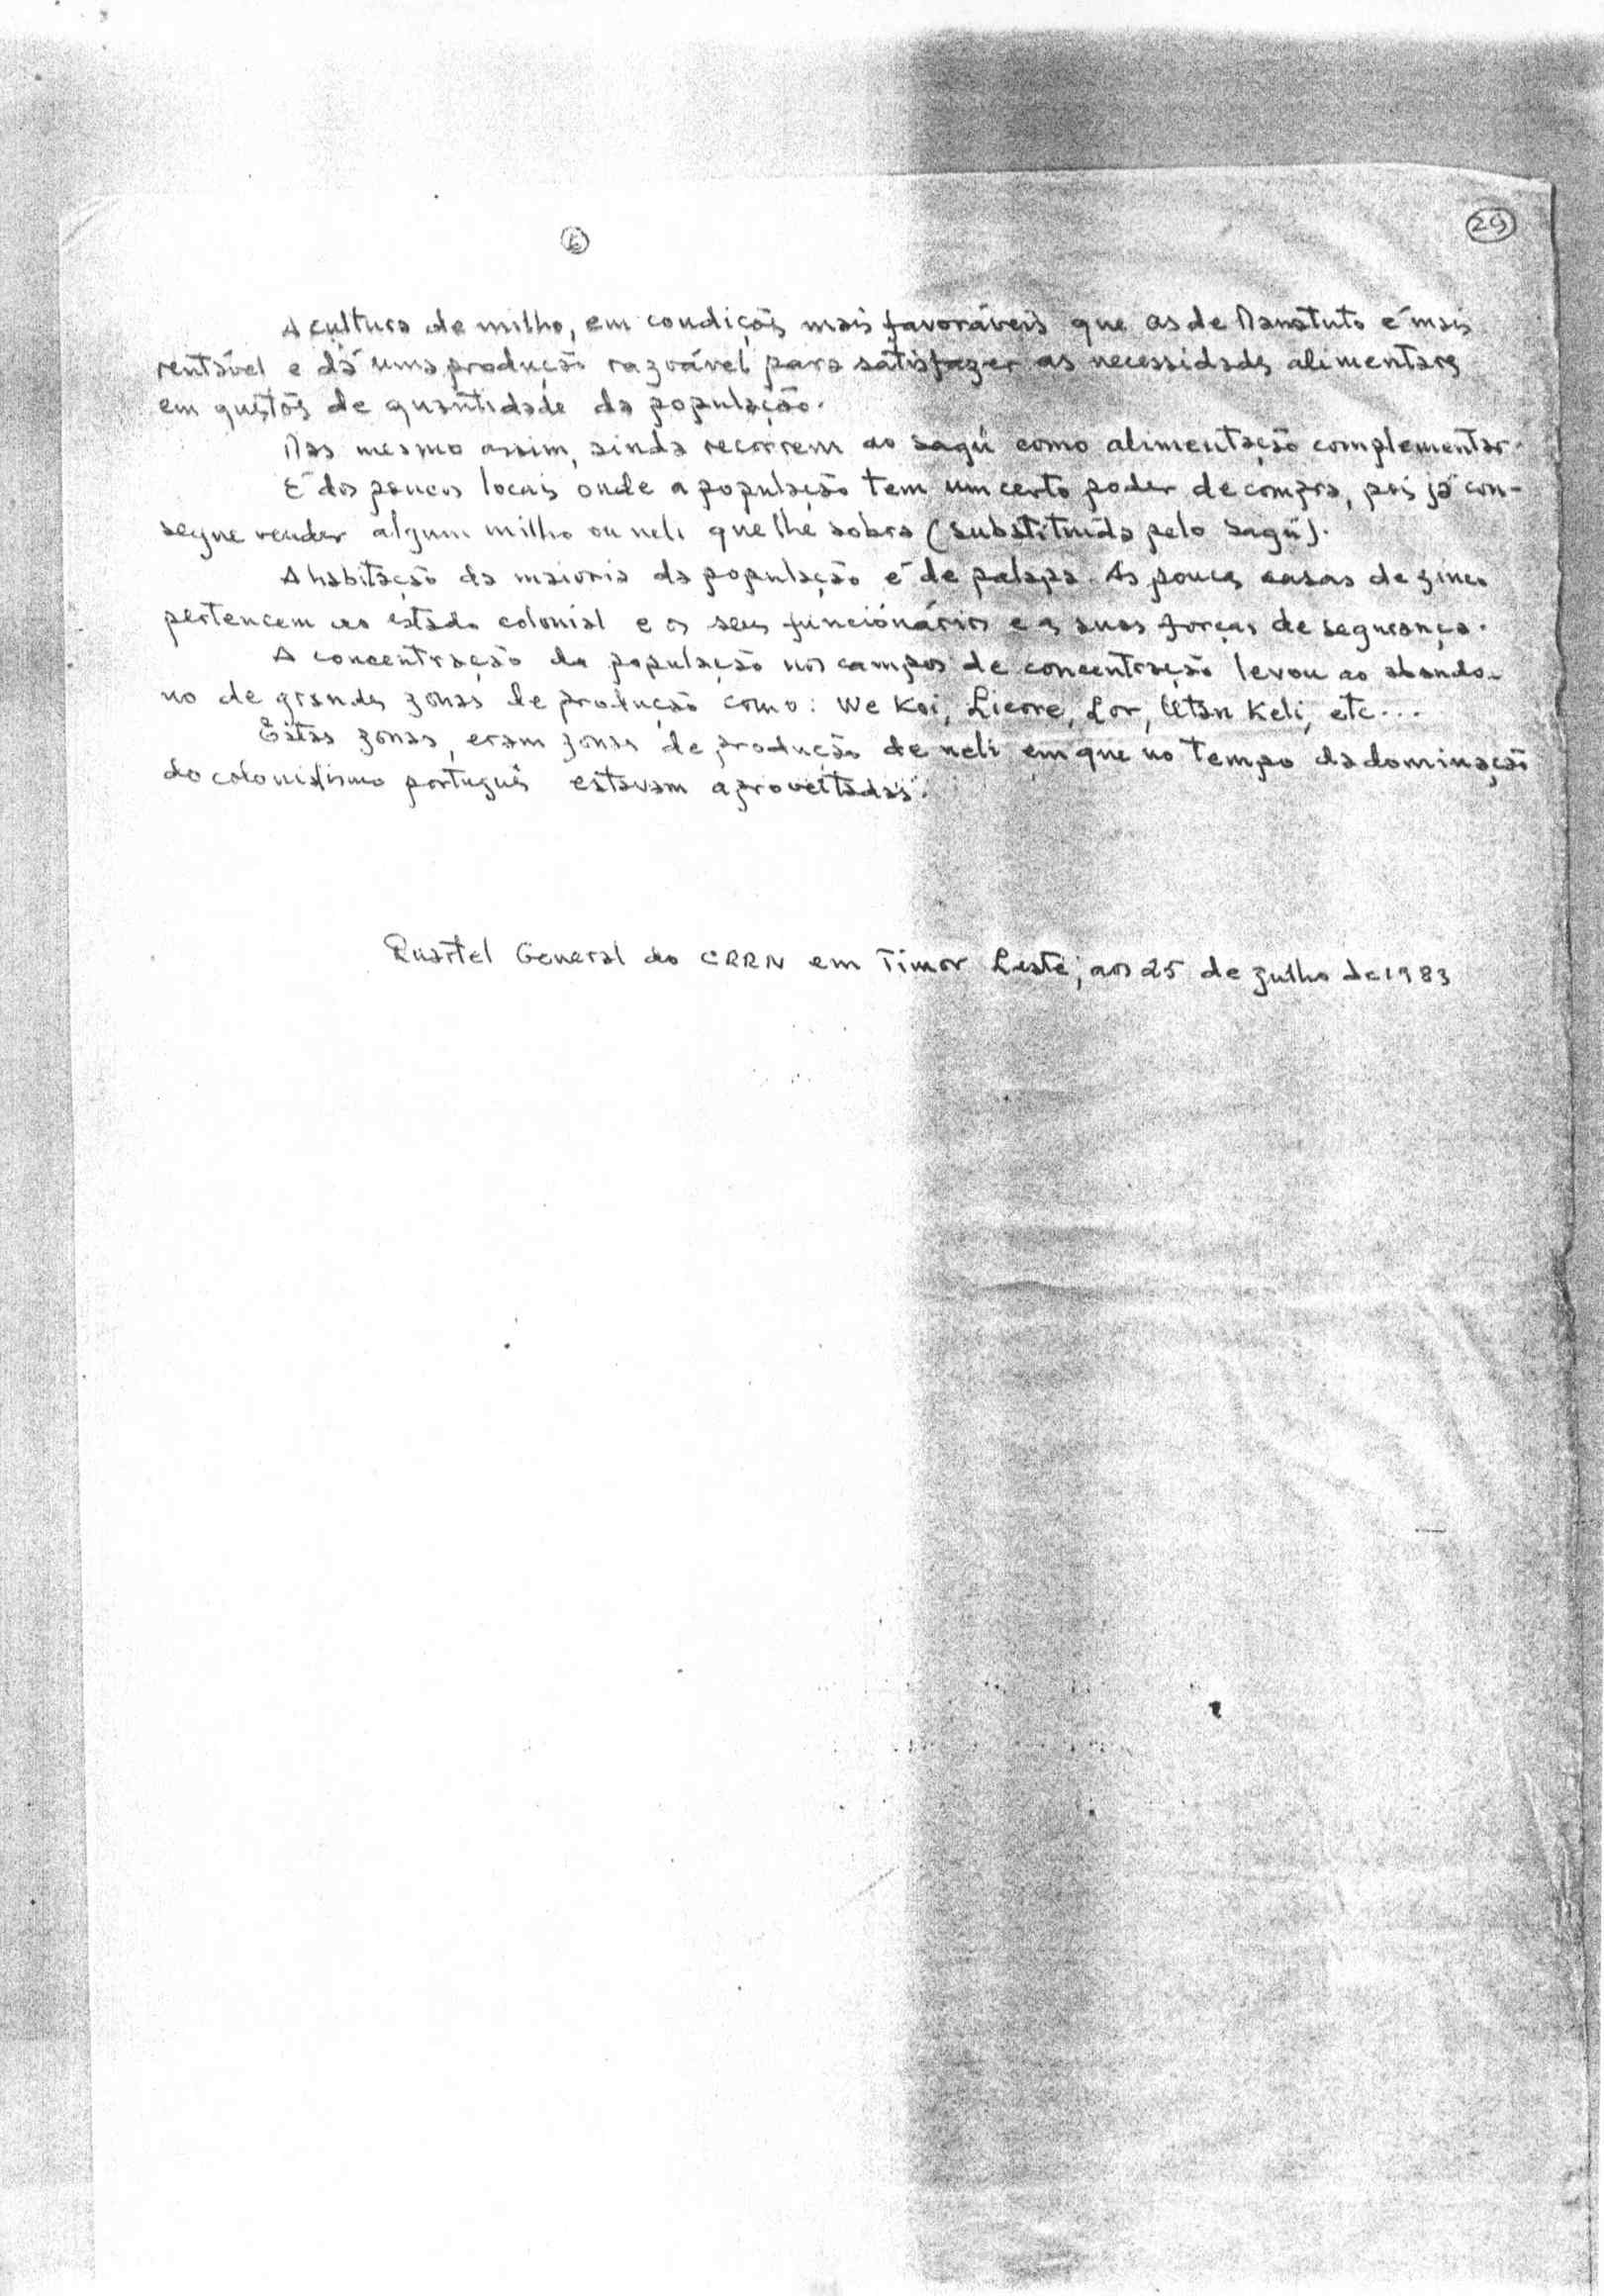 6
29
A cultura de milho, em condições mais favoráveis que as de Manatuto é mais
rentável e dá uma produção razoável para satisfazer as necessidades alimentares
em questões de quantidade da população.
Mas mesmo assim, ainda recorrem ao sagú como alimentação complementar.
É dos poucos locais onde a população tem um certo poder de compra, pois já con-
segue vender algum milho ou neli que lhe sobra (substituída pelo sagú).
A habitação da maioria da população é de palapa. As poucas casas de zinco
pertencem ao estado colonial e os seus funcionários e as suas forças de segurança.
A concentração da população nos campos de concentração levou ao abando-
no de grandes zonas de produção como: We Koi, Licore, Lor, Utan Keli, etc...
Estas zonas, eram zonas de produção de neli em que no tempo da dominação
do colonialismo português estavam aproveitadas.
Quartel General do CRRN em Timor Leste, aos 25 de julho de 1983